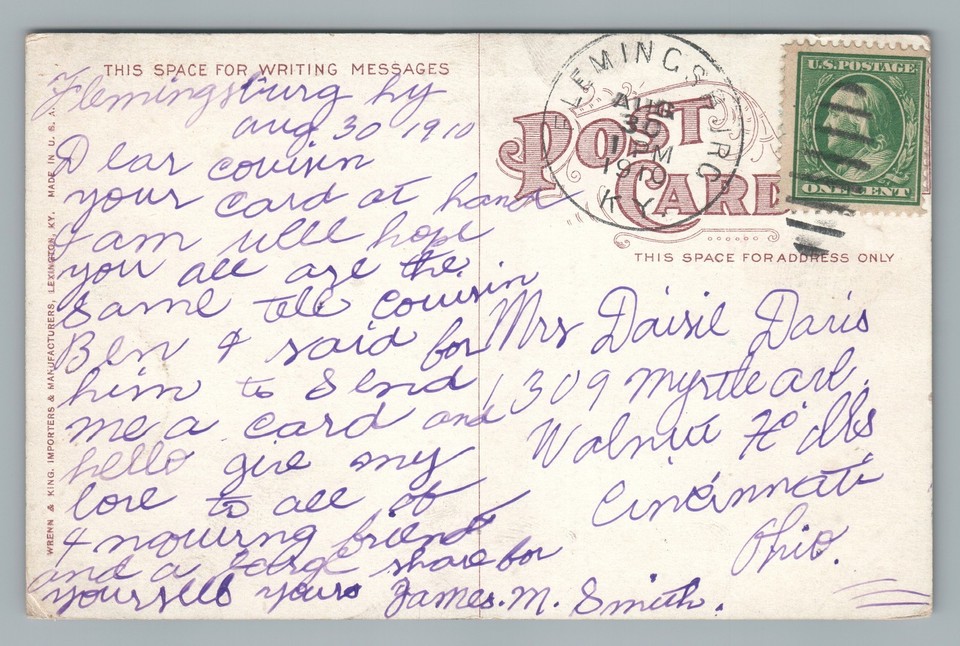 THIS SPACE FOR WRITING MESSAGES
Flemingsburg Ky
Aug 30 1910
Dear cousin
your card at hand
I am well hope
you all are the
same tell cousin
Ben I said for
him to send
me a card and
hello give my
love to all of
inquiring friends
and a large share for
yourself yours James. M. Smith.
WRENN & KING, IMPORTERS & MANUFACTURERS, LEXINGTON, KY. MADE IN U. S. A.
POST CARD
FLEMINGSBURG
AUG
30
1 PM
1910
KY.
U.S. POSTAGE
ONE CENT
THIS SPACE FOR ADDRESS ONLY
Mrs Daisie Davis
1309 Myrtle ave.
Walnut Hills
Cincinnati
Ohio.